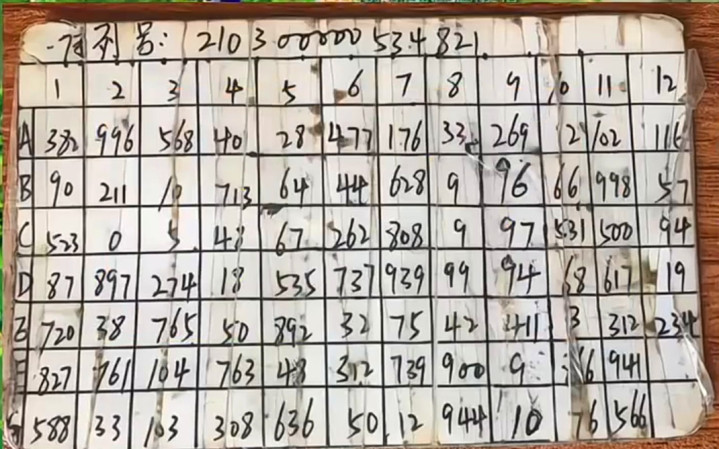 序列号: 2103 00000 534 821
1 2 3 4 5 6 7 8 9 10 11 12
A 382 996 568 40 28 477 176 33 269 2 102 116
B 90 211 10 713 64 44 628 9 96 66 998 57
C 523 0 5 48 67 262 808 9 97 531 500 94
D 87 897 274 18 535 737 939 99 94 68 617 19
E 720 38 765 50 892 32 75 42 411 3 312 234
827 761 104 763 48 312 739 900 9 941
588 33 103 308 636 50 12 944 10 76 566